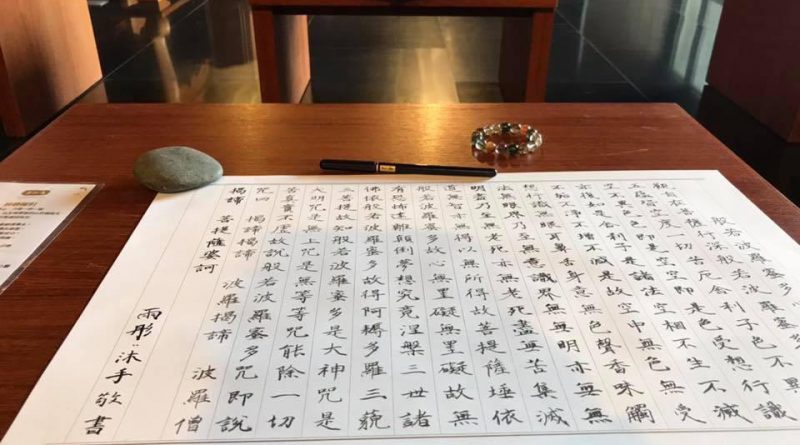 般若波羅蜜多
觀自在菩薩行深般若波羅蜜多
五蘊皆空度一切苦厄舍利子色不異
空空不異色色即是空空即是色受想行識
亦復如是舍利子是諸法空相不生不滅
不垢不淨不增不減是故空中無色無受
想行識無眼耳鼻舌身意無色聲香味觸
法無眼界乃至無意識界無無明亦無無
明盡乃至無老死亦無老死盡無苦集滅
道無智亦無得以無所得故菩提薩埵依
般若波羅蜜多故心無罣礙無罣礙故無
有恐怖遠離顛倒夢想究竟涅槃三世諸
佛依般若波羅蜜多故得阿耨多羅三藐
三菩提故知般若波羅蜜多是大神咒是
大明咒是無上咒是無等等咒能除一切
苦真實不虛故說般若波羅蜜多咒即說
咒曰 揭諦揭諦 波羅揭諦 波羅僧
揭諦 菩提薩婆訶
雨彤 沐手敬書